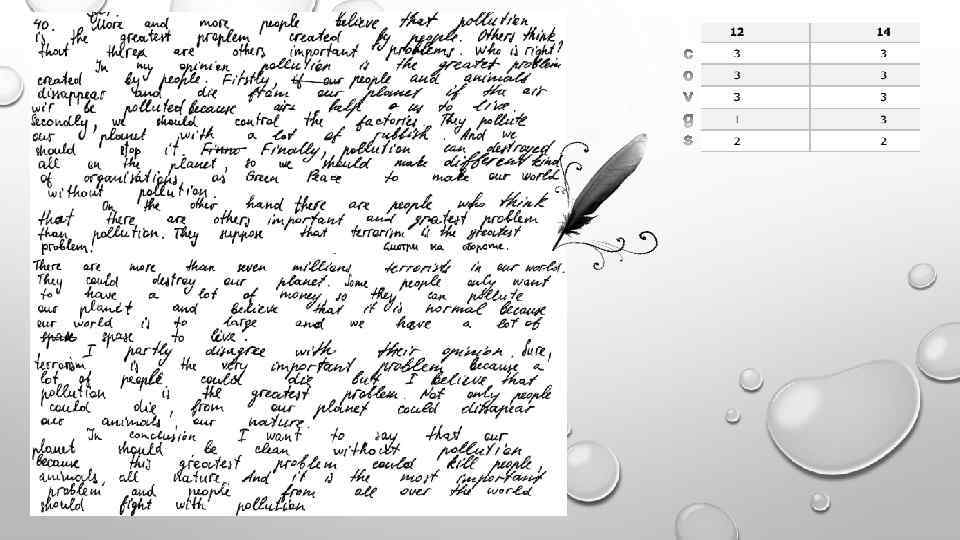 40. More and more people believe that pollution
is the greatest proplem created by people. Others think
that therex are others important problems. Who is right?
In my opinion pollution is the greatest problem
created by people. Fitstly, if our people and animals
dissappear and die from our planet if the air
wir be polluted because air help us to live.
Secondly, we should control the factories. They pollute
our planet with a lot of rubbish. And we
should stop it. Finno Finally, pollution can destroyed
all on the planet, so we should make different kind
of organisations, as Green Peace to make our world
without pollution.
On the other hand there are people who think
that there are others important and greatest problem
than pollution. They suppose that terrorism is the greatest
problem! Смотри на обороте.
There are more than seven millions terrorists in our world.
They could destroy our planet. Some people only want
to have a lot of money, so they can pollute
our planet and believe that it is normal because
our world is to large and we have a lot of
spase spase to live.
I partly disagree with their opinion. Sure,
terrorism is the very important problem because a
lot of people could die but I believe that
pollution is the greatest problem. Not only people
could die, from our planet could dissapear
our animals, our nature.
In conclusion I want to say that our
planet should be clean without pollution
because this greatest problem could kill people,
animals, all nature. And it is the most important
problem and people from all over the world
should fight with pollution
12 14
C 3 3
O 3 3
V 3 3
g 1 3
S 2 2